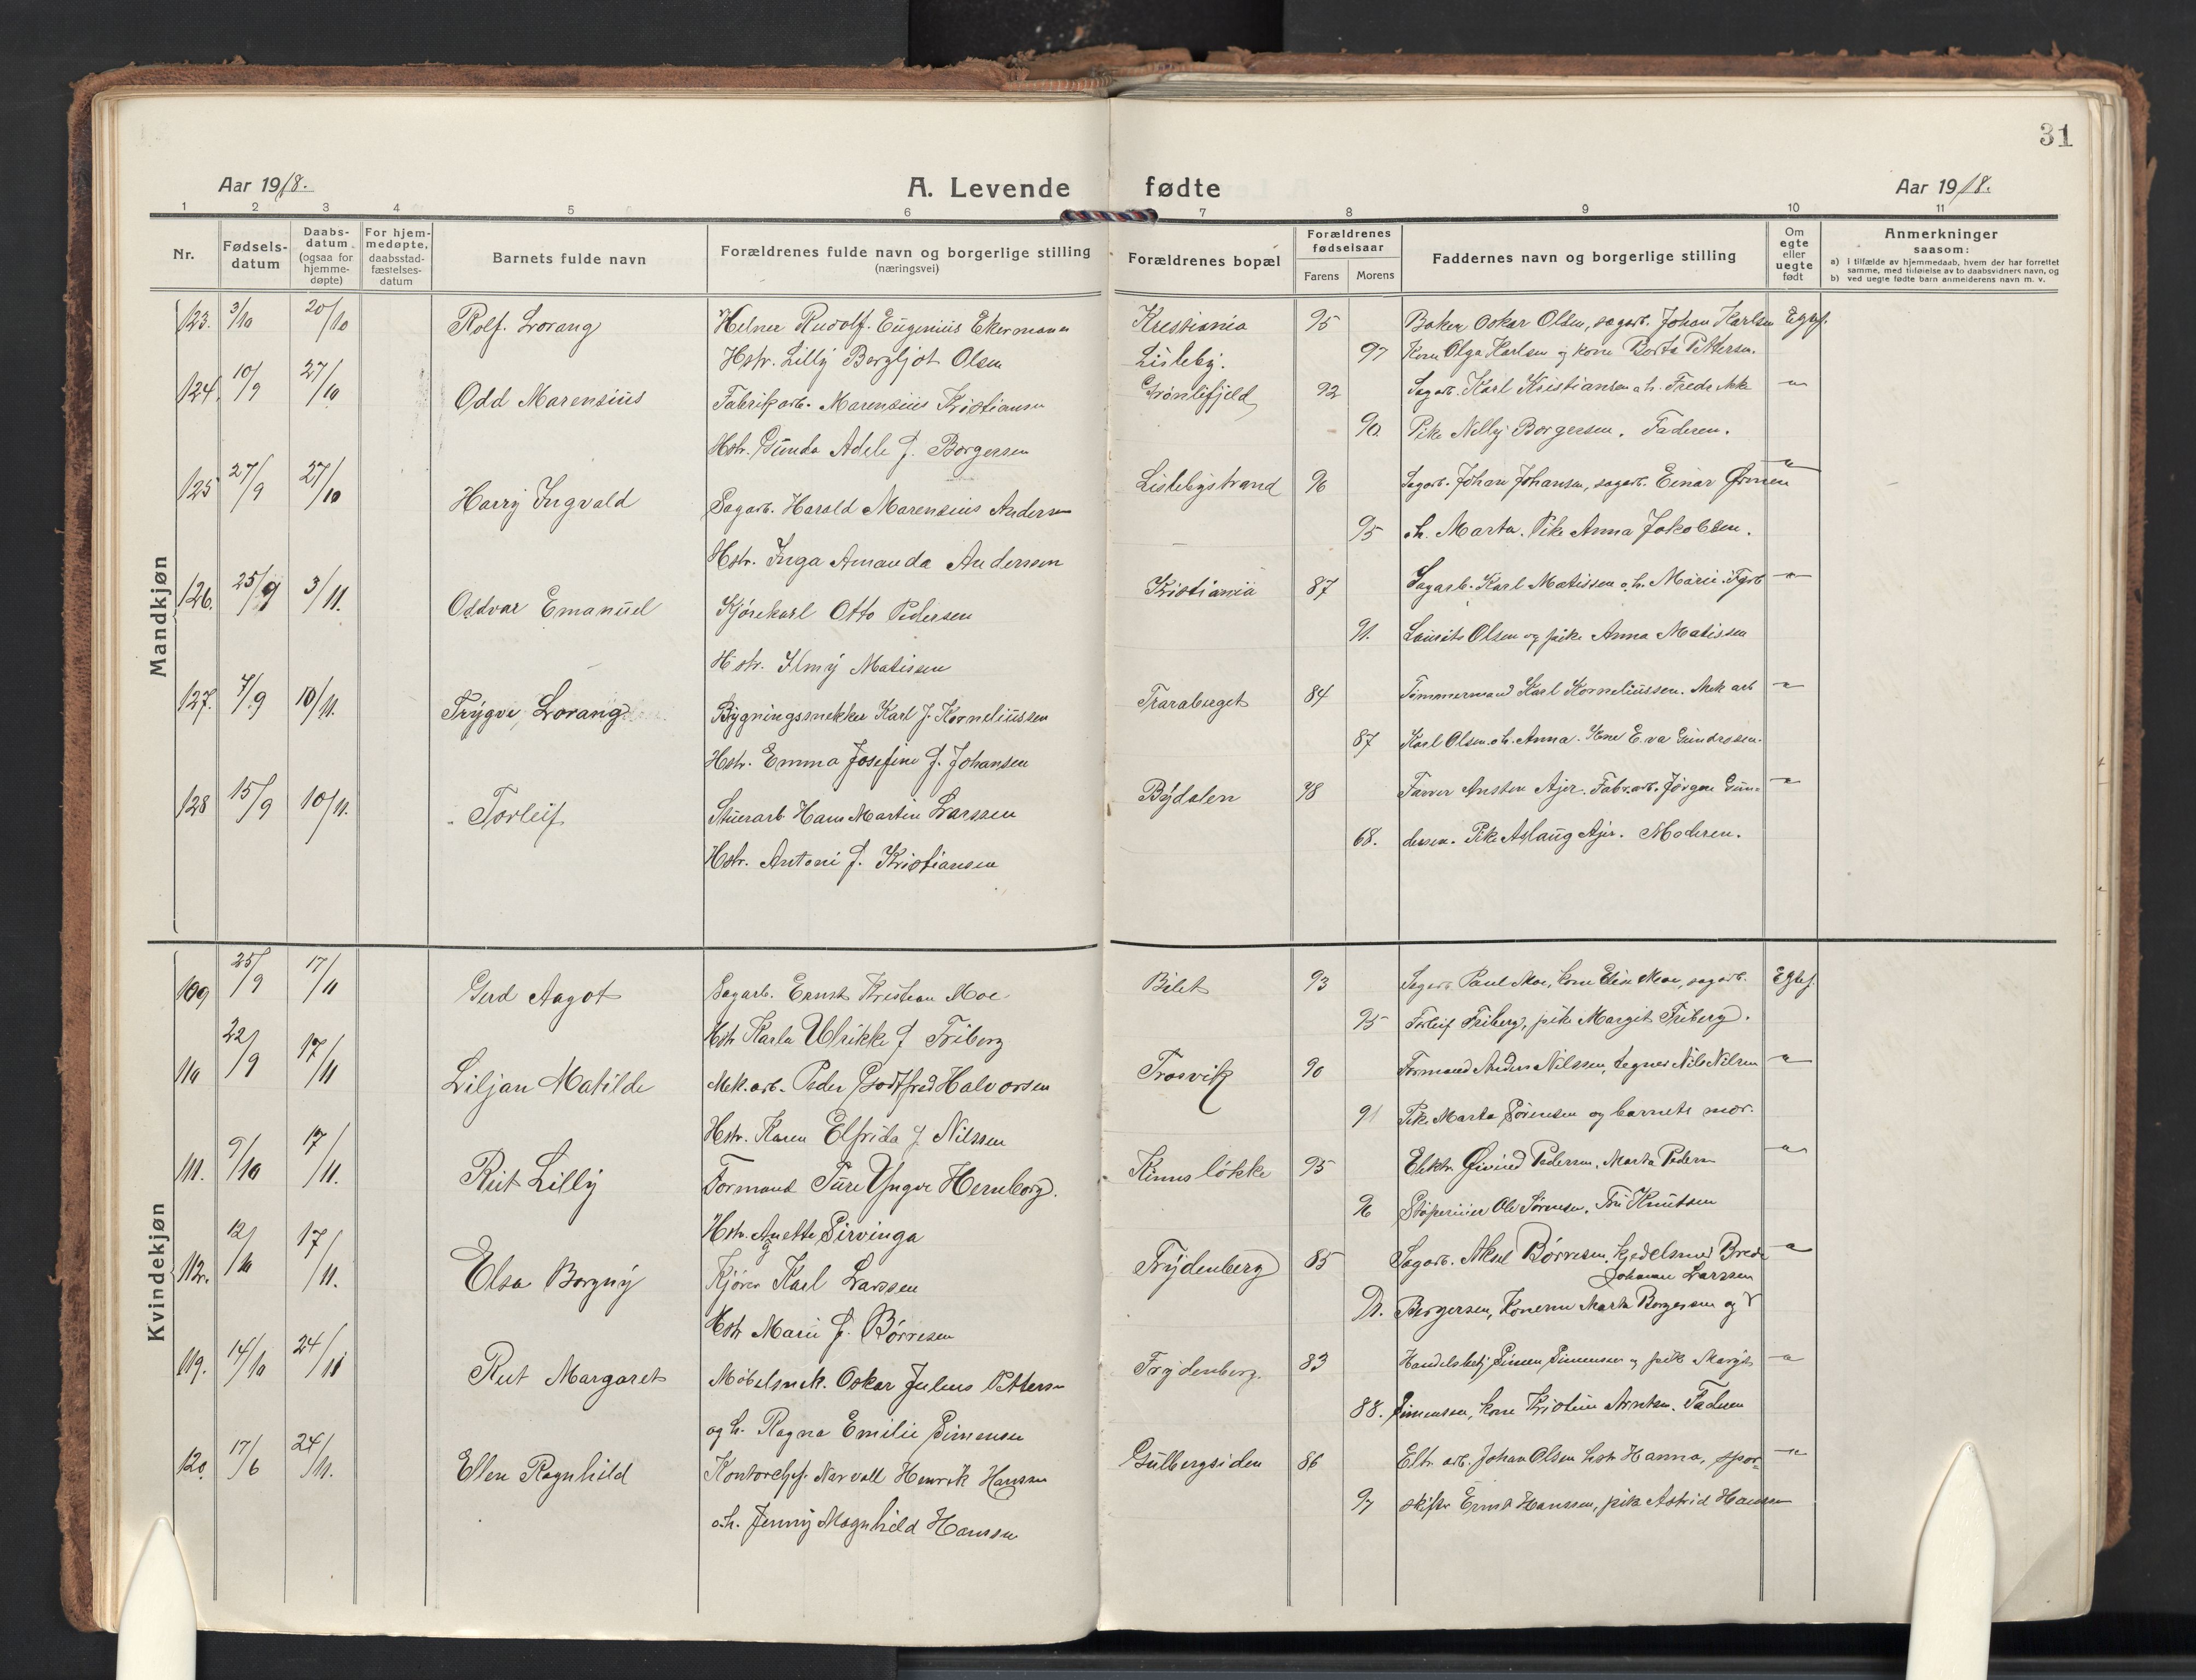 31
Aar 1918.
A. Levende fødte
Aar 1918.
1 2 3 4 5 6 7 8 9 10 11
Nr.
Fødsels-
datum
Daabs-
datum
(ogsaa for
hjemme-
døpte)
For hjem-
medøpte,
daabsstad-
fæstelses-
datum
Barnets fulde navn
Forældrenes fulde navn og borgerlige stilling
(næringsvei)
Forældrenes bopæl
Forældrenes
fødselsaar
Farens Morens
Faddernes navn og borgerlige stilling
Om
egte
eller
uegte
født
Anmerkninger
saasom:
a) i tilfælde av hjemmedaab, hvem der har forrettet
samme, med tilføielse av to daabsvidners navn, og
b) ved uegte fødte barn anmelderens navn m. v.
Mandkjøn
123. 3/10 20/10 Rolf. Lorang Helner Rudolf Eugenius Ekermann Kristiania 95 Baker Oskar Olsen, sagarb. Johan Karlsen Egtef.
Hstr. Lilly Bergljot Olsen Lisleby. 97 Kone Olga Karlsen og kone Berta Pettersen.
124. 10/9 27/10 Odd Marensius Fabrikarb. Marensius Kristiansen Grønlifjeld 92 Sagarb. Karl Kristiansen o.h. Fredrikke —"—
Hstr. Gunda Adele f. Borgersen 90. Pike Nelly Borgersen. Faderen.
125 27/9 27/10 Harry Ingvald Sagarb. Harald Marensius Andersen Lislebystrand 96 Sagarb. Johan Johansen, sagarb. Einar —"—
Hstr. Inga Amanda Andersen 95 o.h. Marta. Pike Anna Jakobsen.
126. 25/9 3/11. Oddvar Emanuel Kjørekarl Otto Pedersen Kristiania 87 Sagarb. Karl Matissen o.h. Marie. —"—
Hstr. Matisen 91. Laurits Olsen og pike Anna Matissen
127. 7/9 10/11. Trygve Lorang Bygningssnekker Karl J. Korneliussen Traraberget 84 Tømmermand Karl Korneliussen. Mek arb —"—
Hstr. Emma Josefine f. Johansen 87 Karl Olsen o.h. Anna. Kone Eva Gundersen.
128 15/9 10/11. Torleif Stuerarb Hans Martin Larssen Bydalen 78 Farver Ansten Ajer. Fabr.arb. Jørgen Gun- —"—
Hstr. Antoni f. Kristiansen 68. dersen. Pike Aslaug Ajer. Moderen.
Kvindekjøn
109 25/9 17/11 Gerd Aagot Sagarb. Ernst Kristian Moe Bilet 93 Sagarb. Paul Moe, kone Elise Moe, sagarb. Egtef.
Hstr Karla Ulrikke f Friberg 95 Torleif Friberg, pike Margit Friberg.
110 22/9 17/11 Liljan Matilde Mek. arb. Peder Godtfred Halvorsen Trosvik 90 Formand Anders Nilssen, tegner Nils Nilsen —"—
Hstr. Karen Elfrida f Nilssen 91 Pike Marta Sørensen og barnets mor.
111. 9/10 17/11. Rut Lilly Formand Ture Yngve Hernborg. Kinnsløkke 95 Elektr. Øivind Pedersen, Marta Pedersen —"—
Hstr. Anette Sirvinga 96 Støperiier Ole Sørensen. Fru Knutsen
112. 12/10 17/11. Elsa Borgny Kjører Karl Larssen Frydenberg 85 Sagarb. Aksel Børresen, kjedelsmed Brede —"—
Johanne Larssen
Hstr Marie f. Børresen 91. Borgersen, Konerne Marta Borgersen og
119. 14/10 24/11 Rut Margaret Møbelsnek. Oskar Julius Pettersen Frydenberg. 83 Handelsbetj. Simen Simensen og pike Margit —"—
og h. Ragna Emilie Simensen 88. Simensen, kone Kristine Arntsen. Faderen
120. 17/6 24/11. Ellen Ragnhild Kontorchef Narvall Henrik Hanssen Gulbergsiden 86 Eltr. arb. Johan Olsen hstr Hanna, spor- —"—
o.h. Jenny Magnhild Hanssen 97 skifter Ernst Hanssen, pike Astrid Hanssen